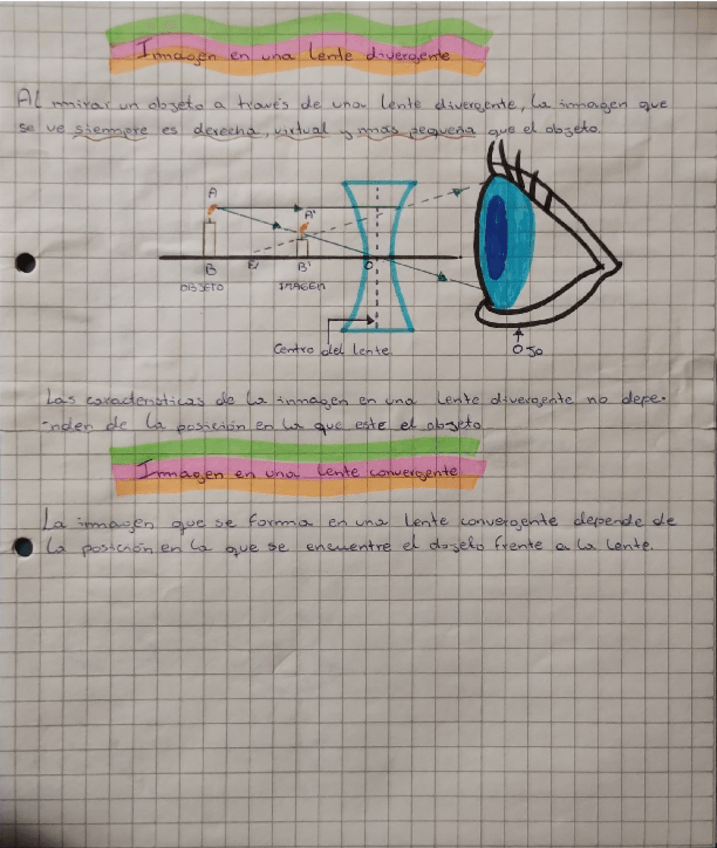 Immagen en una lente divergente
Al mirar un objeto a través de una lente divergente, la immagen que
se ve siempre es derecha, virtual y más pequeña que el objeto.
A
A'
B
F'
B'
O
OBJETO
IMAGEN
Centro del lente
Ojo
Las características de la immagen en una lente divergente no depe-
nden de la posición en la que este el objeto
Immagen en una lente convergente
La immagen que se forma en una lente convergente depende de
la posición en la que se encuentre el objeto frente a la lente.